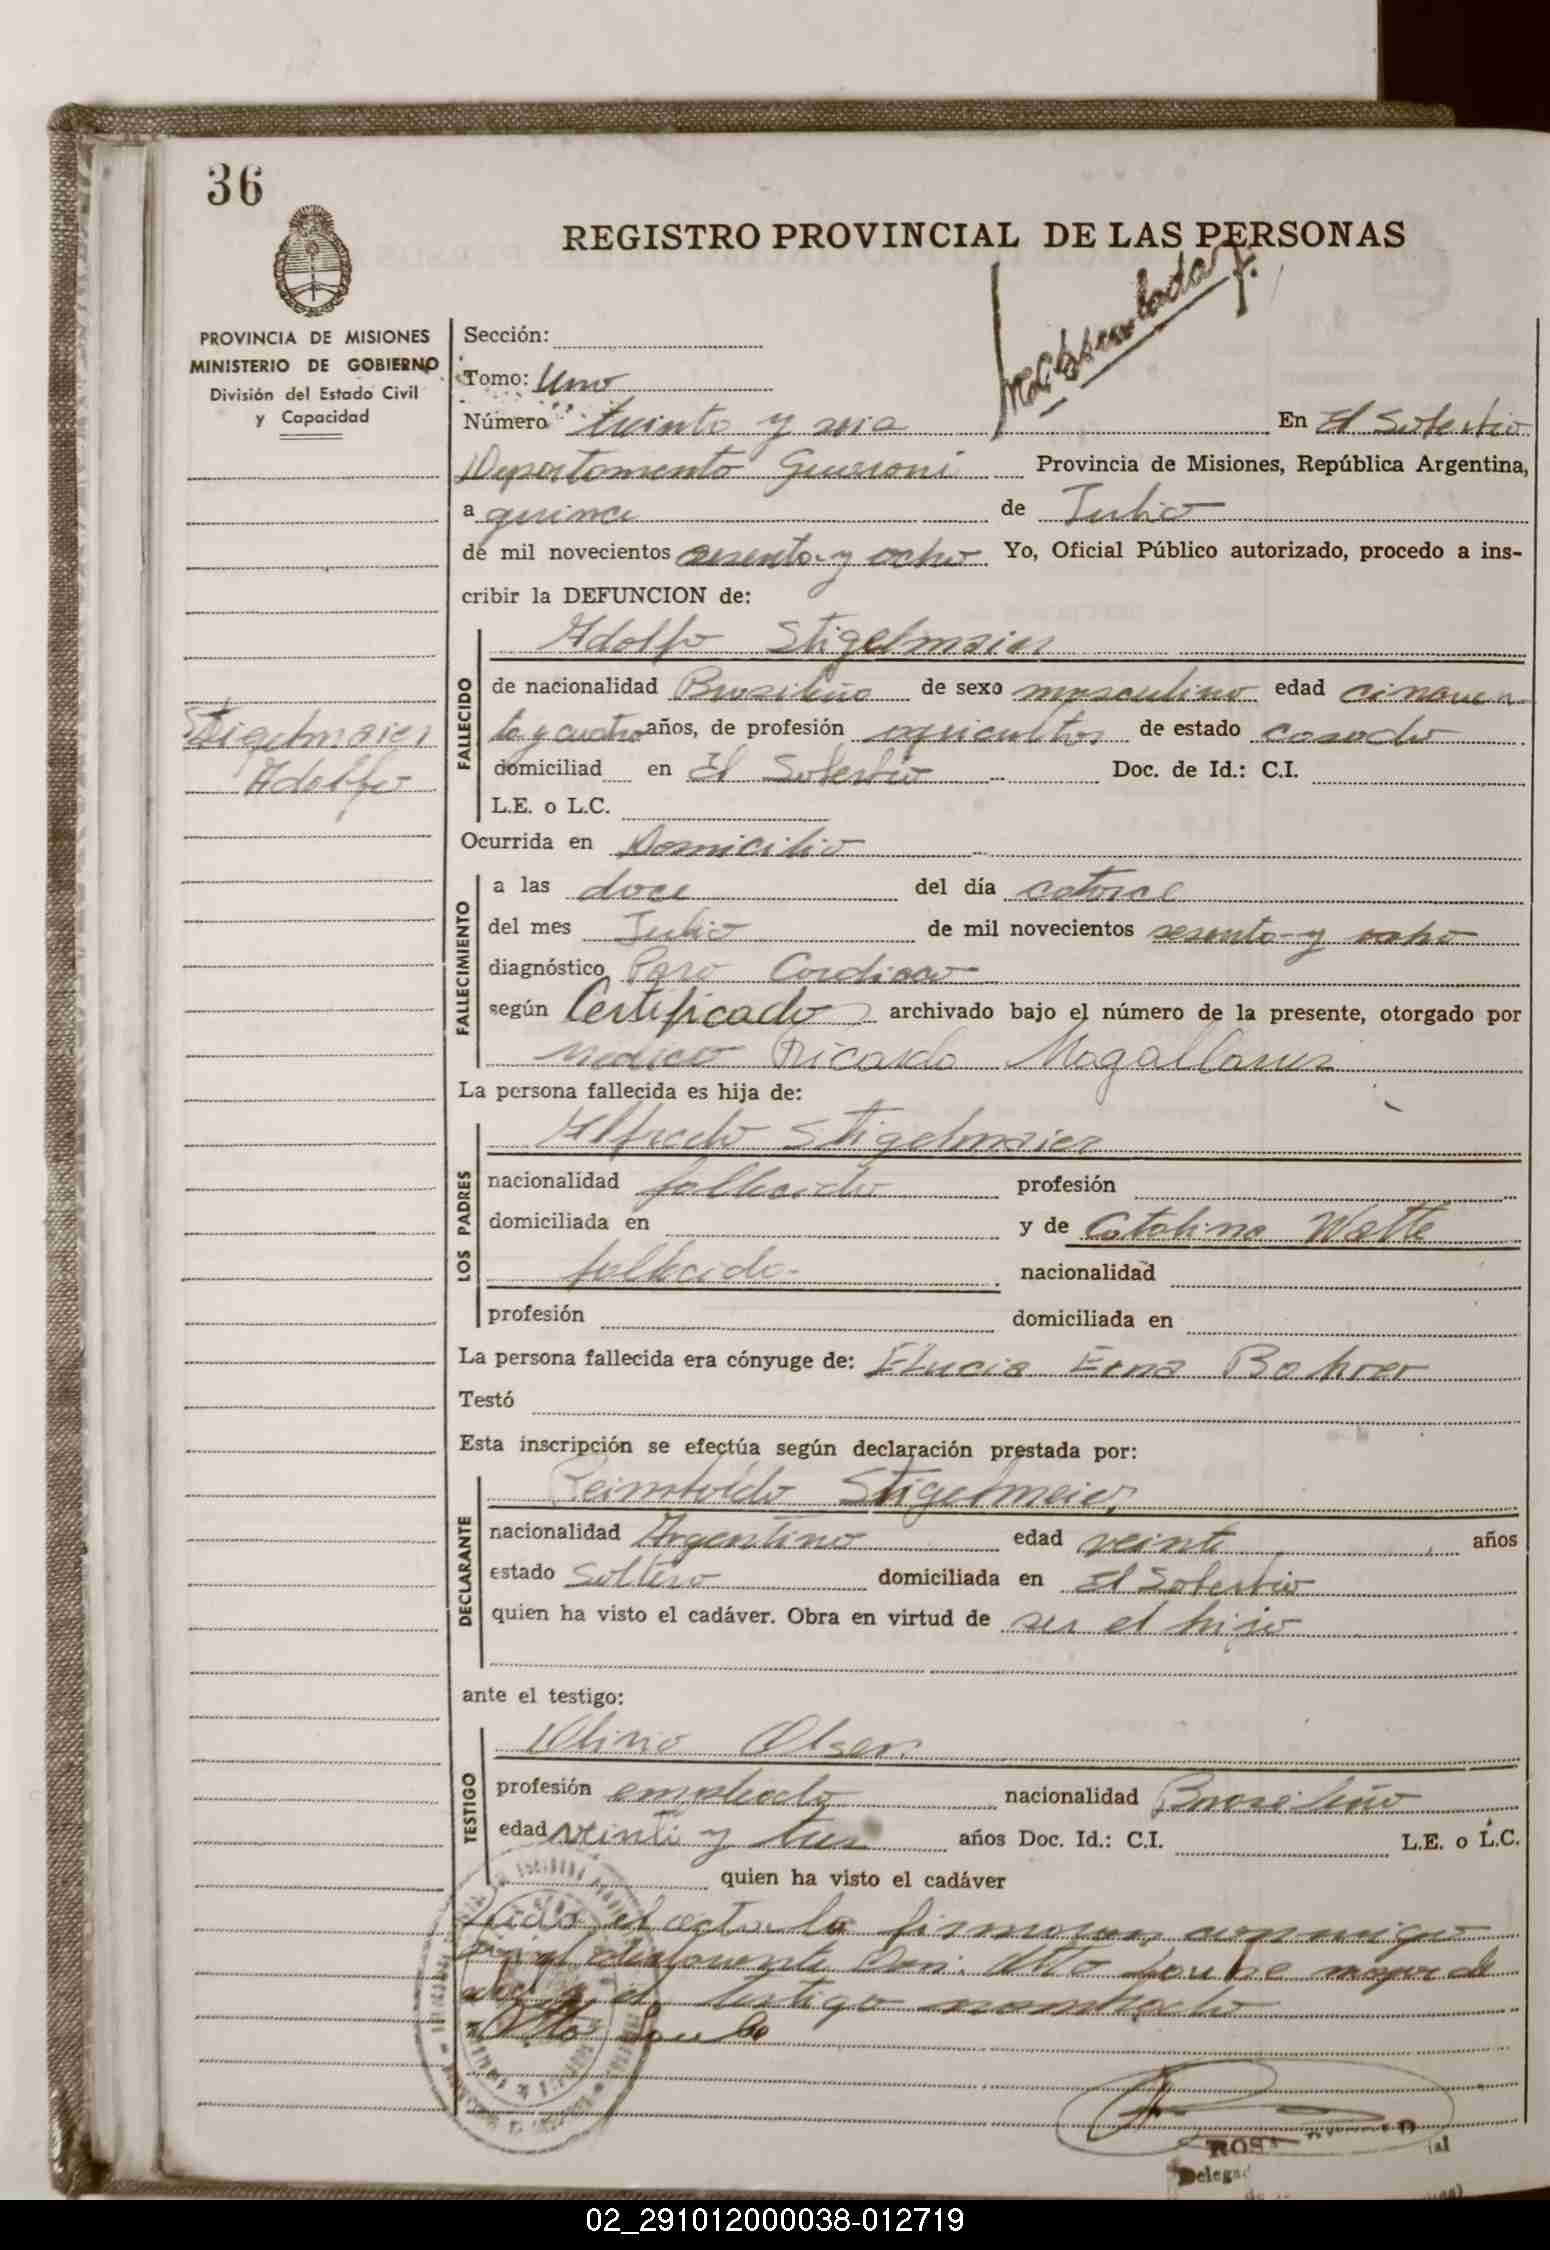 36
REGISTRO PROVINCIAL DE LAS PERSONAS
PROVINCIA DE MISIONES
MINISTERIO DE GOBIERNO
División del Estado Civil
y Capacidad
Stigelmaier
Adolfo
Sección:
Tomo: Uno
Número treinta y seis En El Soberbio
Departamento Guaraní Provincia de Misiones, República Argentina,
a quince de Julio
de mil novecientos sesenta y ocho. Yo, Oficial Público autorizado, procedo a ins-
cribir la DEFUNCION de:
Adolfo Stigelmaier
FALLECIDO
de nacionalidad Brasileño de sexo masculino edad cincuen
ta y cuatro años, de profesión agricultor de estado casado
domiciliad en El Soberbio Doc. de Id.: C.I.
L.E. o L.C.
Ocurrida en Domicilio
FALLECIMIENTO
a las doce del día catorce
del mes Julio de mil novecientos sesenta y ocho
diagnóstico Paro Cardiaco
según Certificado archivado bajo el número de la presente, otorgado por
medico Ricardo Magallanes
La persona fallecida es hija de:
LOS PADRES
Alfredo Stigelmaier
nacionalidad fallecido profesión
domiciliada en y de Catalina Watte
fallecida- nacionalidad
profesión domiciliada en
La persona fallecida era cónyuge de: Elucia Erna Bohrer
Testó
Esta inscripción se efectúa según declaración prestada por:
DECLARANTE
Reinholdo Stigelmeier
nacionalidad Argentino edad veinte años
estado Soltero domiciliada en El Soberbio
quien ha visto el cadáver. Obra en virtud de ser el hijo
ante el testigo:
TESTIGO
profesión empleado nacionalidad Brasileño
edad veinti y tres años Doc. Id.: C.I. L.E. o L.C.
quien ha visto el cadáver
el acta la firmaron conmigo
el declarante Don: Otto mayor de
el testigo nombrado
Otto
Delega
02_291012000038-012719